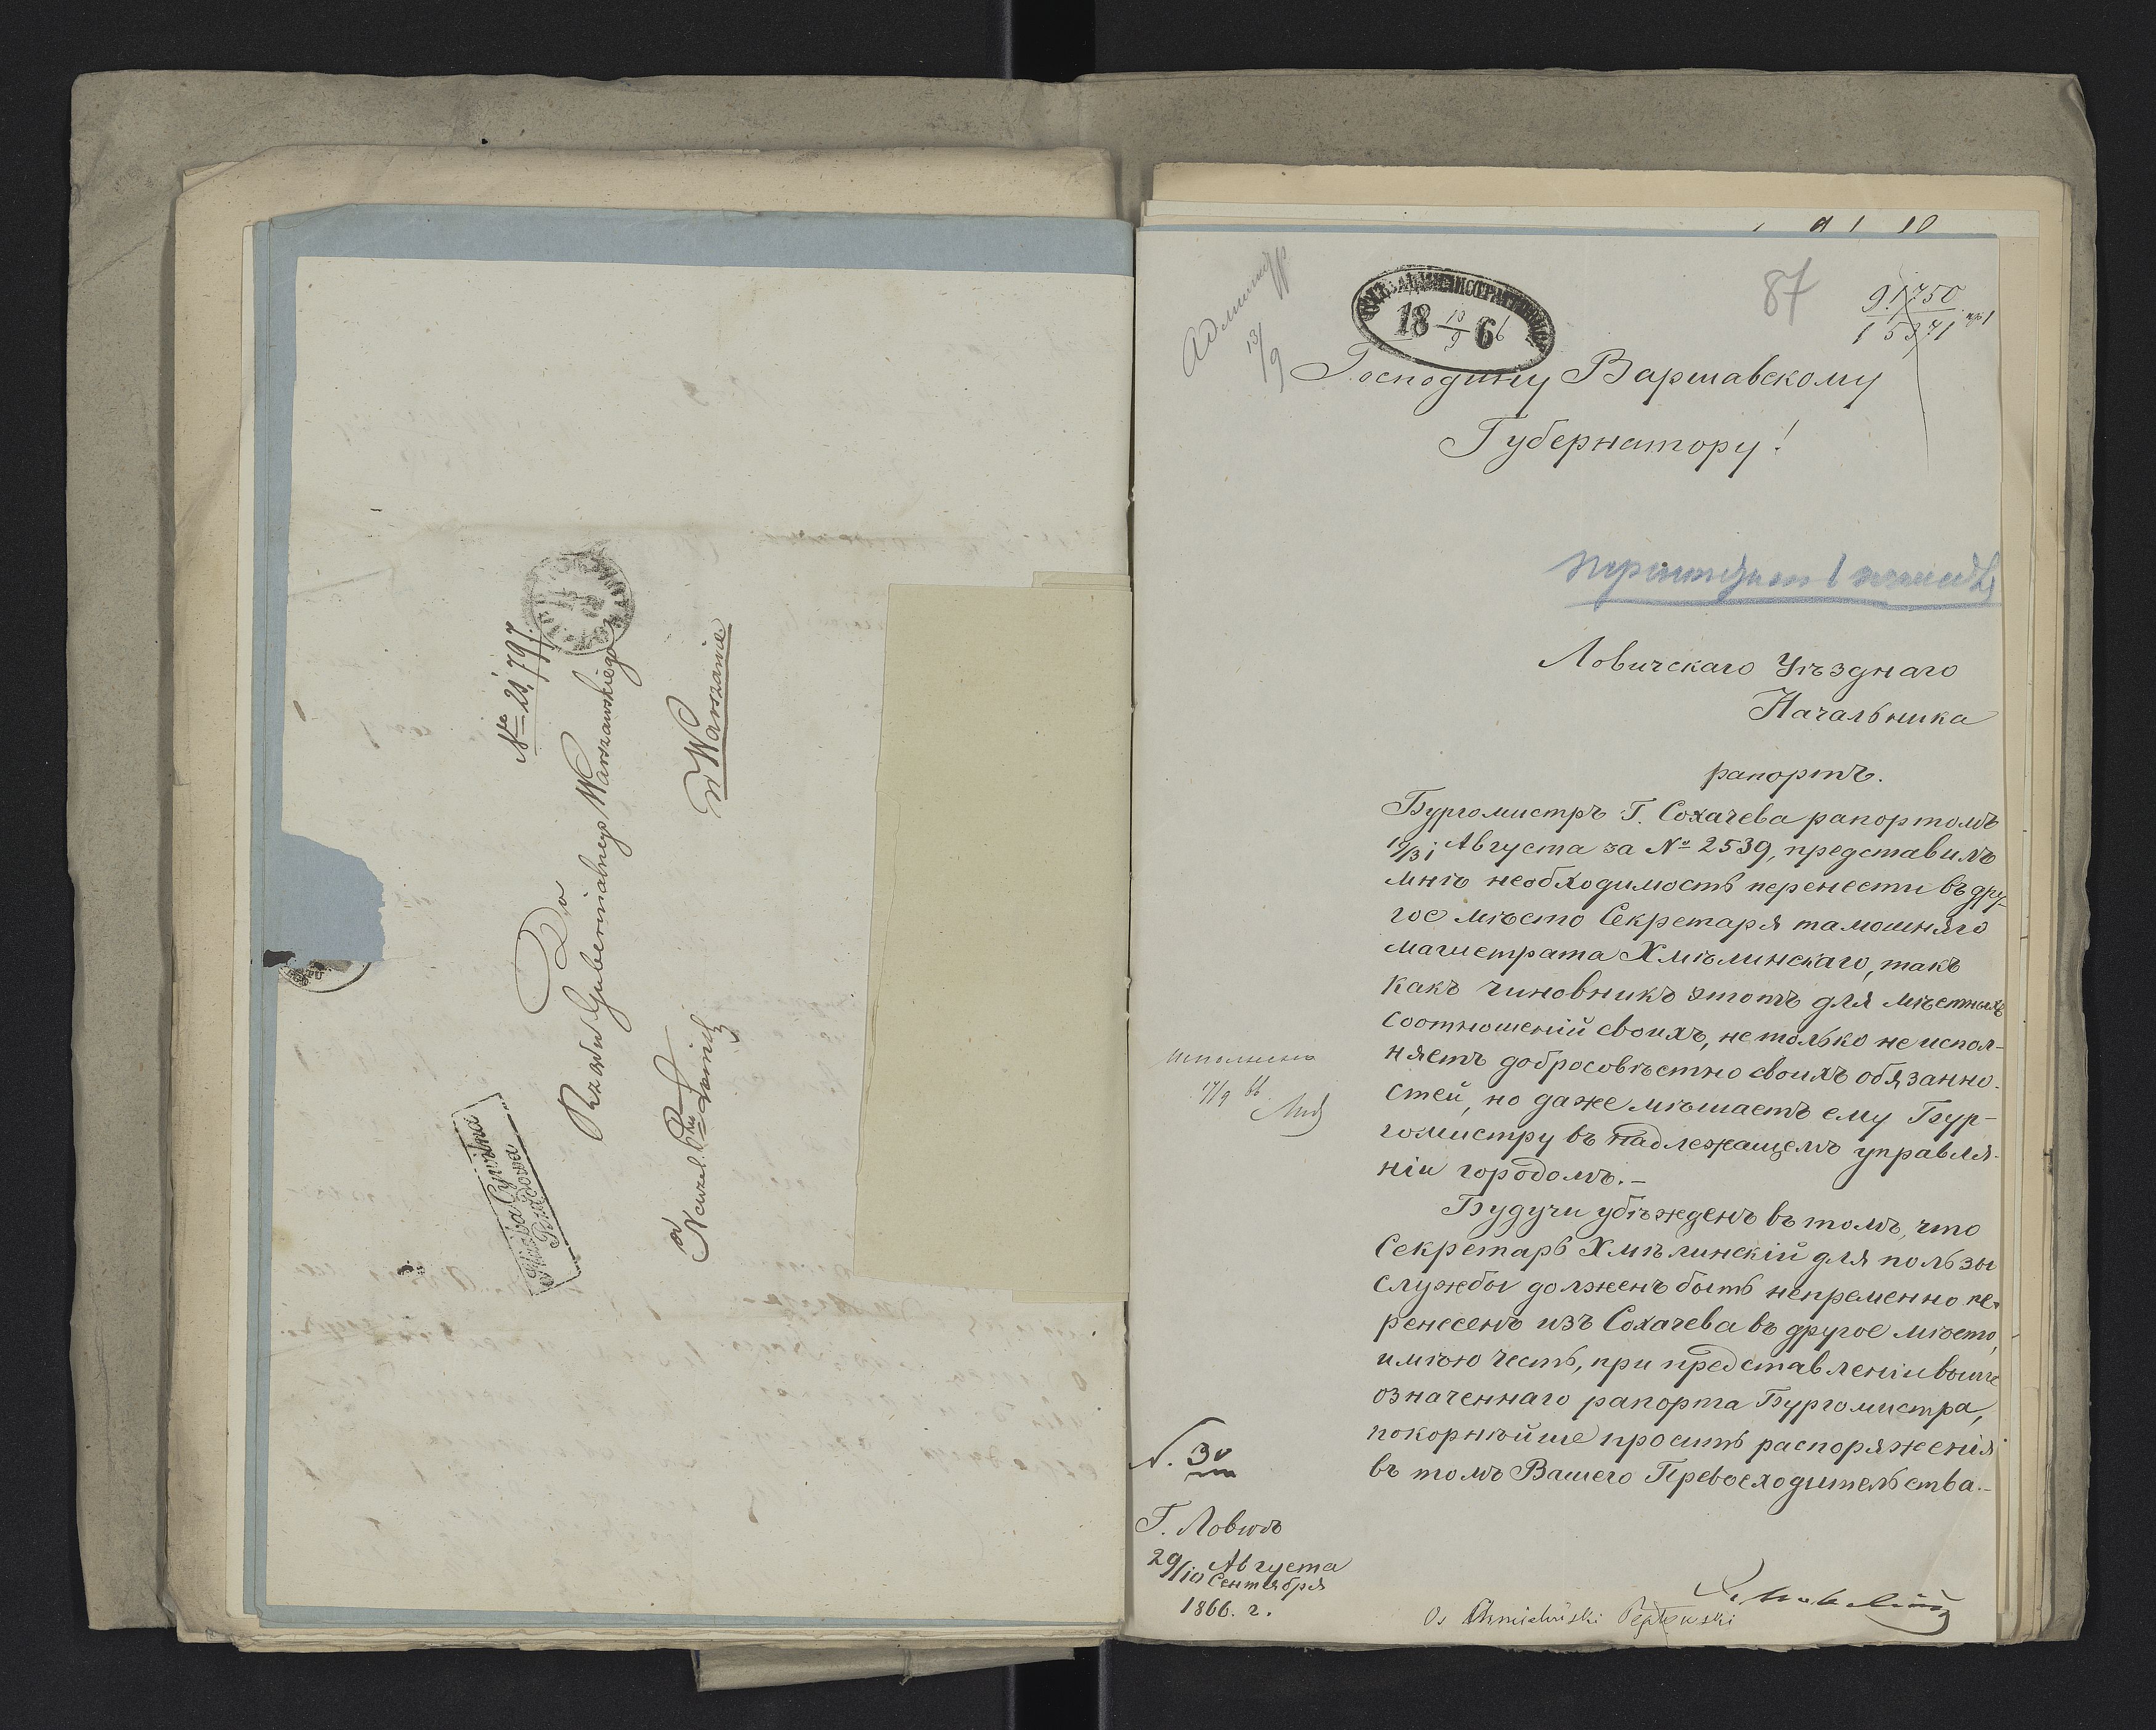 Nro 20,797.
Do
Rządu Gubernialnego Warszawskiego
w Warszawie
od
Naczel. Ptu
Służba Cywilna
Powiatowa
87
91750
15371
Админист
13/9
18 10/9 66
Господину Варшавскому
Губернатору!
Ловичскаго Уѣзднаго
Начальника
рапортъ.
Бургомистръ Г. Сохачева рапортомъ
19/31 Августа за № 2539, представилъ
мнѣ необходимость перенести въ дру-
гое мѣсто Секретаря тамошняго
магистрата Хмѣлинскаго, такъ
какъ чиновникъ этотъ для мѣстныхъ
соотношеній своихъ, не только не испол-
няетъ добросовѣстно своихъ обязанно-
стей, но даже мѣшаетъ ему Бур-
гомистру въ надлежащемъ управле-
ніи городомъ.-
Будучи убѣжденъ въ томъ, что
Секретарь Хмѣлинскій для пользы
службы долженъ быть непременно пе-
ренесенъ изъ Сохачева въ другое мѣсто,
имѣю честь, при представленіи выше
означеннаго рапорта Бургомистра,
покорнѣйше просить распоряженія
въ томъ Вашего Превосходительства.-
исполнено
17/9 66
N. 30
Г. Ловичъ
29/10 Августа
Сентября
1866. г.
Os Chmieliński